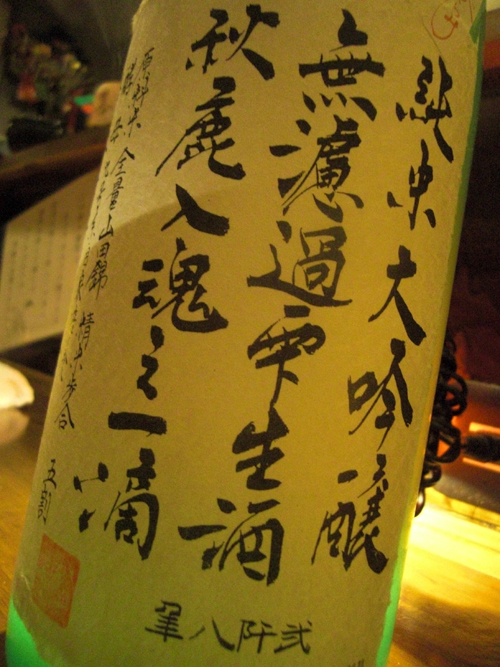 純米大吟醸
無濾過雫生酒
秋鹿入魂之一滴
原料米 全量山田錦 精米歩合 五割
弐阡八年